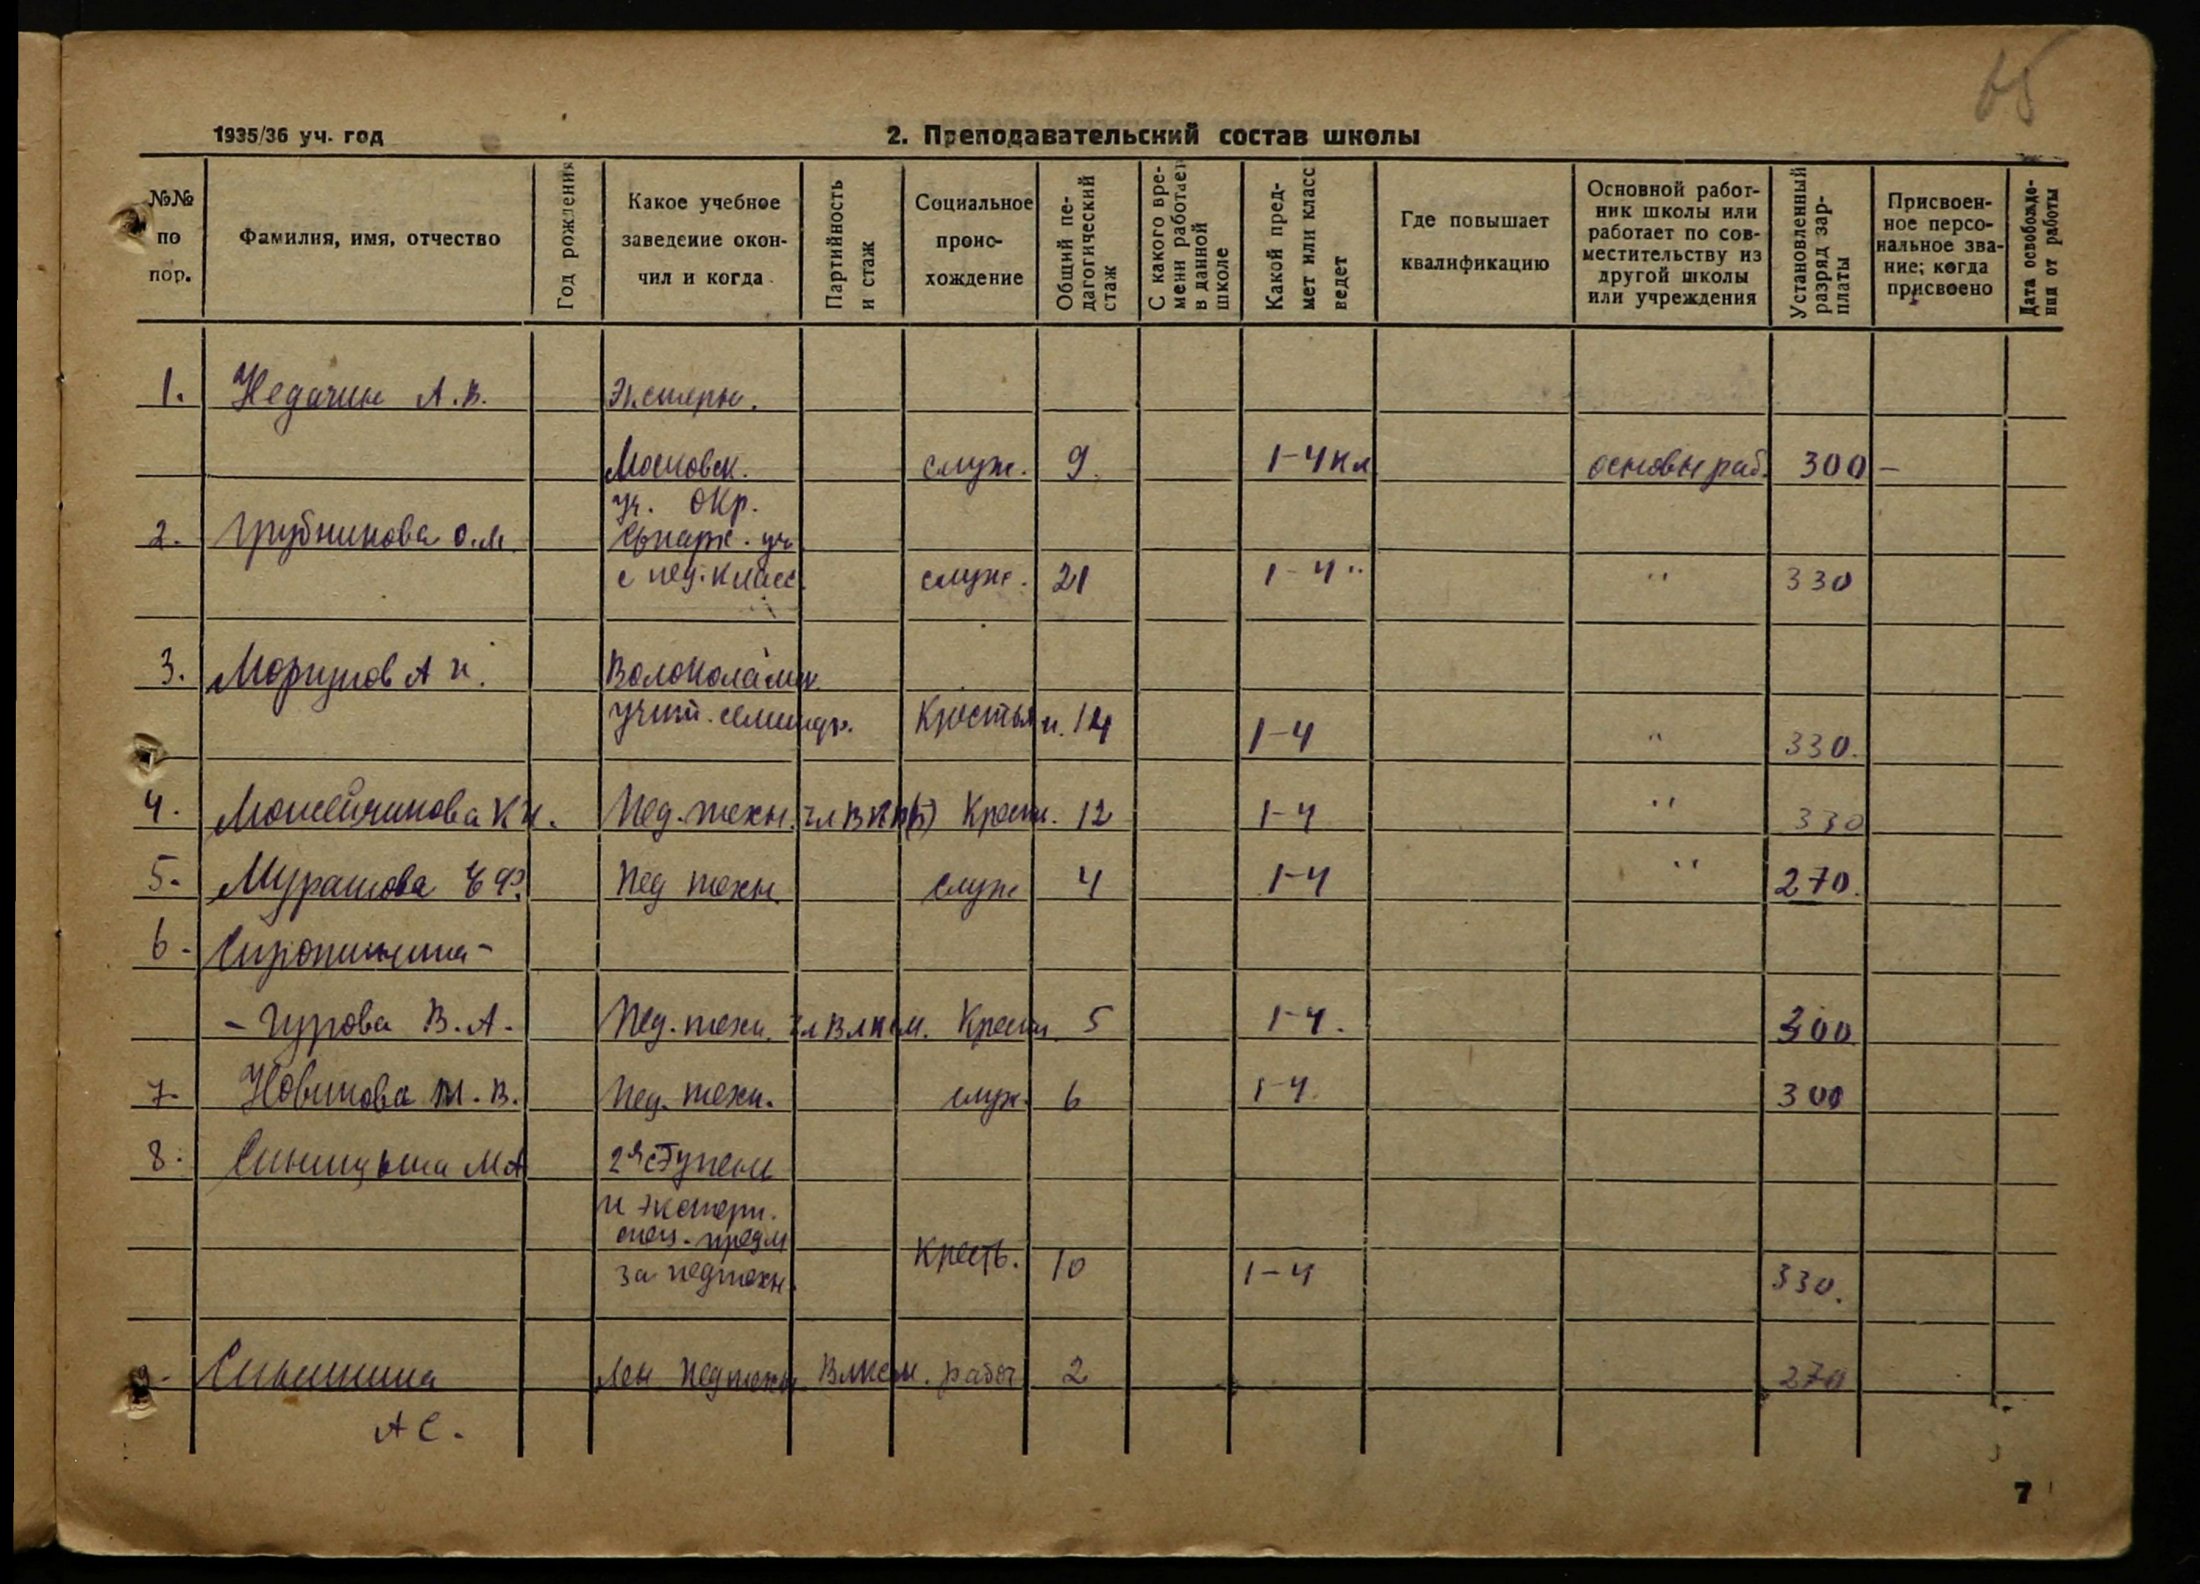 65
1935/36 уч. год
2. Преподавательский состав школы
№№ по пор.
Фамилия, имя, отчество
Год рождения
Какое учебное заведение окончил и когда
Партийность и стаж
Социальное происхождение
Общий педагогический стаж
С какого времени работает в данной школе
Какой предмет или класс ведет
Где повышает квалификацию
Основной работник школы или работает по совместительству из другой школы или учреждения
Установленный разряд зарплаты
Присвоенное персональное звание; когда присвоено
Дата освобождения от работы
1. Недачин А.В. Экстерн.
Московск. служ. 9. 1-4 кл основн раб. 300 —
уч. окр.
2. Трубникова О.М. Епарх. уч
с пед. класс. служ. 21 1-4 " " 330
3. Моргунов А И. Волоколамск.
учит. семинар. Крестьян. 14 1-4 " 330.
4. К И. Пед. техн. чл ВКП(б) Крест. 12 1-4 " 330
5. Мурашова Е Ф. Пед техн. служ 4 1-4 " 270.
6.
- Гурова В. А. Пед. техн. чл ВЛКСМ. Крест. 5 1-4. 300
7. Новикова М. В. Пед. техн. служ. 6 1-4 300
8. Синицына М А 2я ступени
и экстерн.
спец. предм
за педтехн. Кресть. 10 1-4 330.
9. Лен педтехн. ВЛКСМ. рабоч 2 270
А С.
7